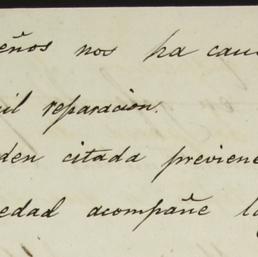 eños nos ha cau
il reparacion.
den citada previene
edad acompañe la